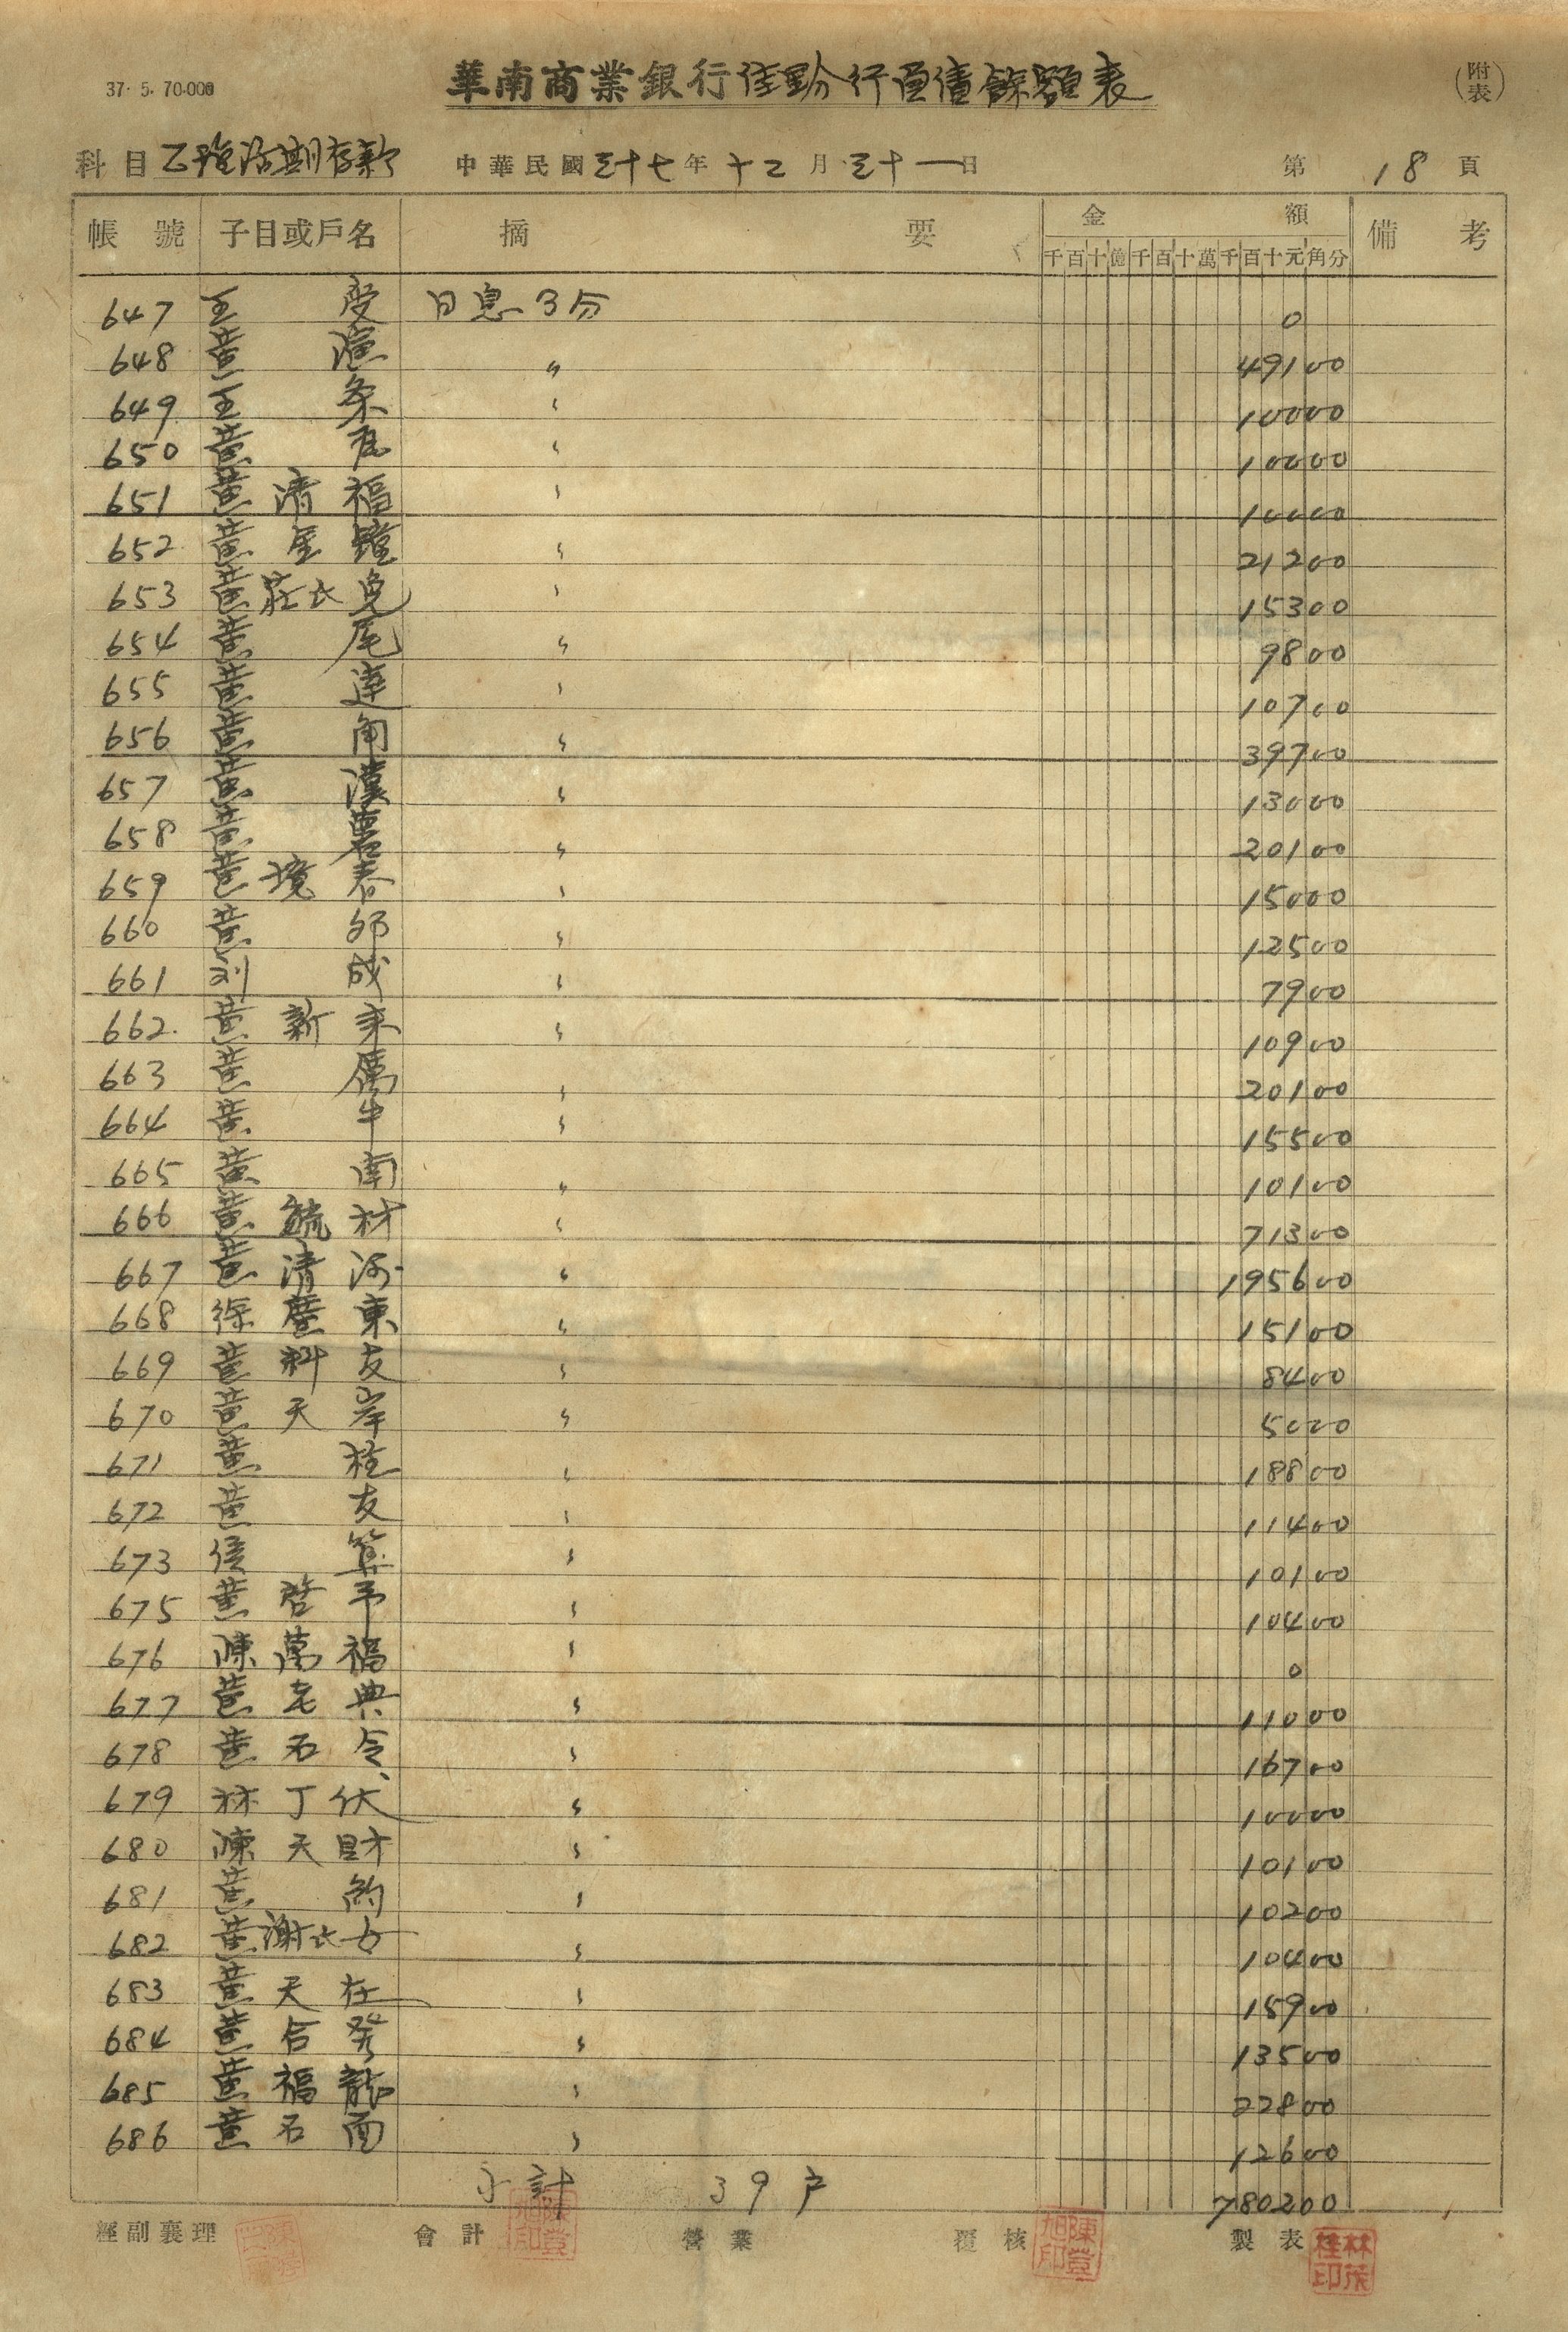 37. 5. 70.000
華南商業銀行佳里分行負債餘額表
(附表)
科目 乙種活期存款 中華民國三十七年十二月三十一日 第 18 頁
帳號 子目或戶名 摘要 金額 備考
千百十億千百十萬千百十元角分
647 王 受 日息3分 0
648 黃 〃 49100
649 王 条 〃 10000
650 黃 〃 10000
651 黃清福 〃 10000
652 黃金鐘 〃 21200
653 黃莊氏兔 〃 15300
654 黃 尾 〃 9800
655 黃 達 〃 10700
656 黃 角 〃 39700
657 黃 漢 〃 13000
658 黃 〃 20100
659 黃境春 〃 15000
660 黃 〃 12500
661 刘 成 〃 7900
662 黃新来 〃 10900
663 黃 〃 20100
664 黃 牛 〃 15500
665 黃 南 〃 10100
666 黃 材 〃 71300
667 黃清河 〃 195600
668 徐 東 〃 15100
669 黃科友 〃 8400
670 黃天岸 〃 5000
671 黃 桂 〃 18800
672 黃 友 〃 11400
673 侯 算 〃 10100
675 黃啓 〃 10400
676 陳萬福 〃 0
677 黃老典 〃 11000
678 黃石令 〃 16700
679 林丁伏 〃 10000
680 陳天財 〃 10100
681 黃 〃 10200
682 黃謝氏女 〃 10400
683 黃天在 〃 15900
684 黃合発 〃 13500
685 黃福龍 〃 22800
686 黃石面 〃 12600
小計 39户 780200
經副襄理 會計 營業 覆核 製表
陳登旭印
陳登旭印
林茂桂印